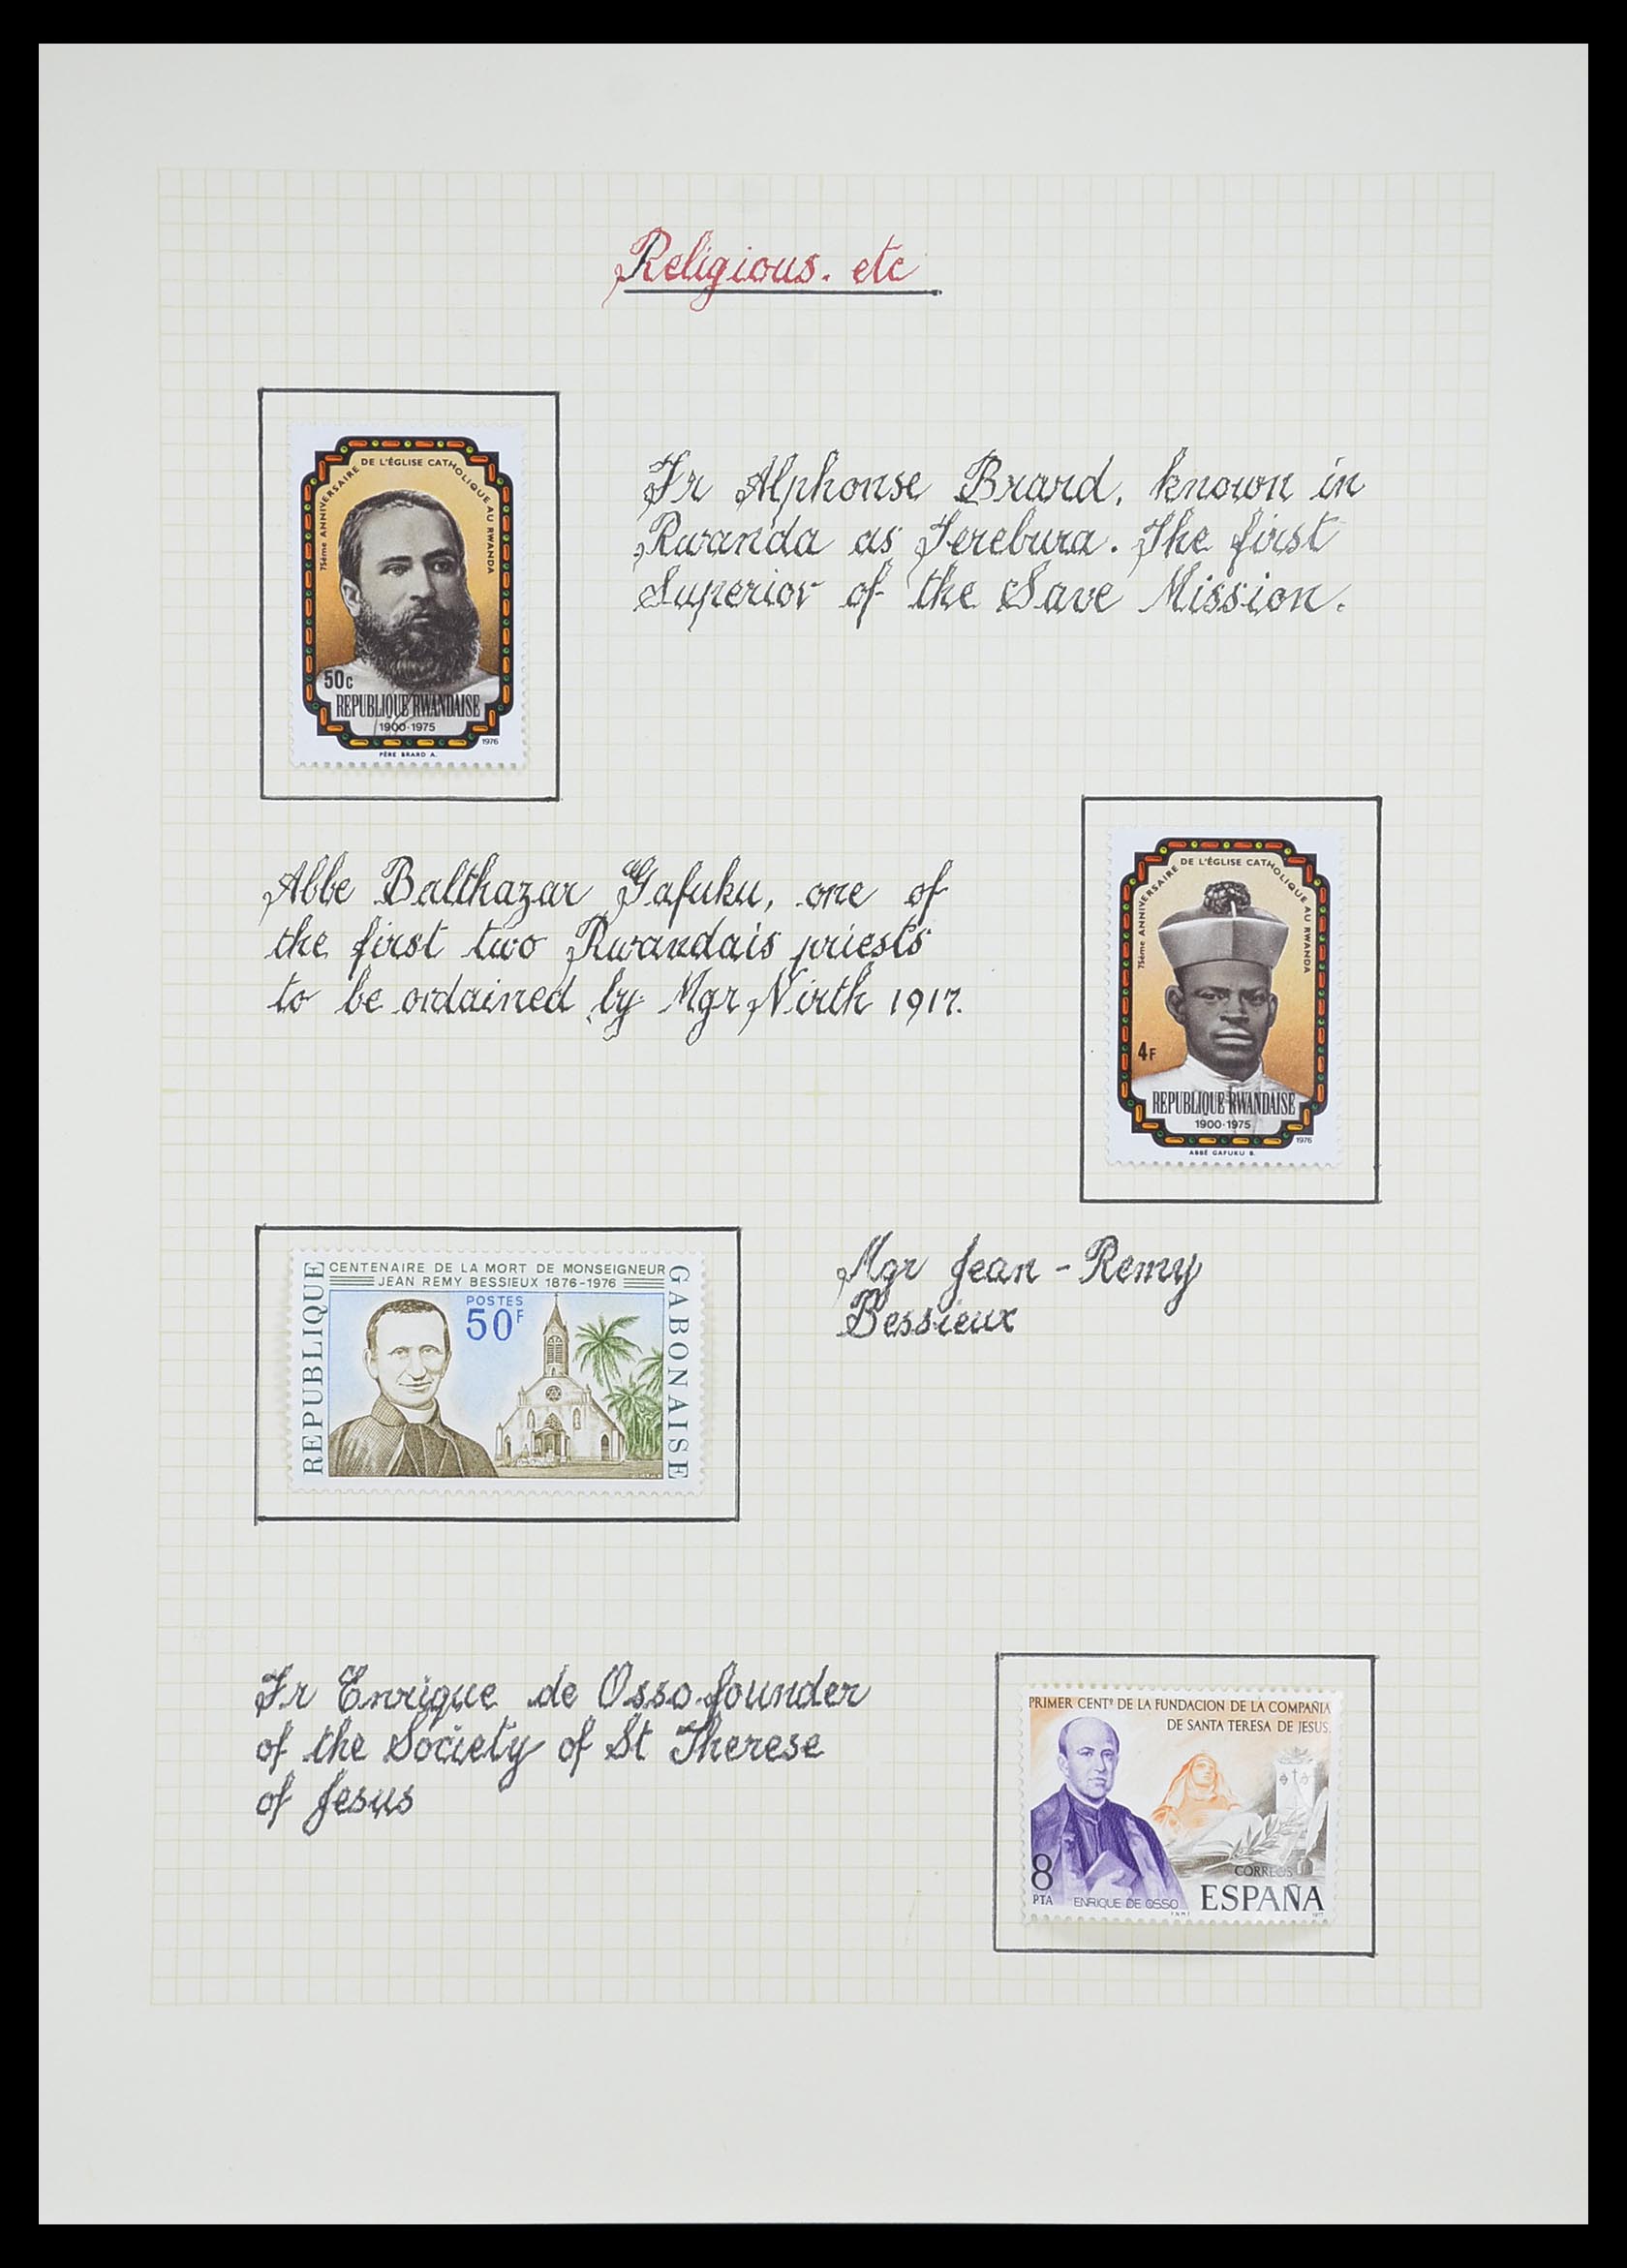 Religious. etc
75ème ANNIVERSAIRE DE L'ÉGLISE CATHOLIQUE AU RWANDA
50c
REPUBLIQUE RWANDAISE
1900-1975
1976
PÈRE BRARD A.
Fr Alphonse Brard, known in
Rwanda as Terebura. The first
Superior of the Save Mission.
Abbe Balthazar Gafuku, one of
the first two Rwandais priests
to be ordained by Mgr Nirth 1917.
75ème ANNIVERSAIRE DE L'ÉGLISE CATHOLIQUE AU RWANDA
4F
REPUBLIQUE RWANDAISE
1900-1975
1976
ABBÉ GAFUKU B.
CENTENAIRE DE LA MORT DE MONSEIGNEUR
JEAN REMY BESSIEUX 1876-1976
POSTES
50F
REPUBLIQUE
GABONAISE
Mgr Jean-Remy
Bessieux
Fr Enrique de Osso founder
of the Society of St Therese
of Jesus
PRIMER CENTº DE LA FUNDACION DE LA COMPAÑIA
DE SANTA TERESA DE JESUS.
8
PTA
ENRIQUE DE OSSO
CORREOS
ESPAÑA
1977